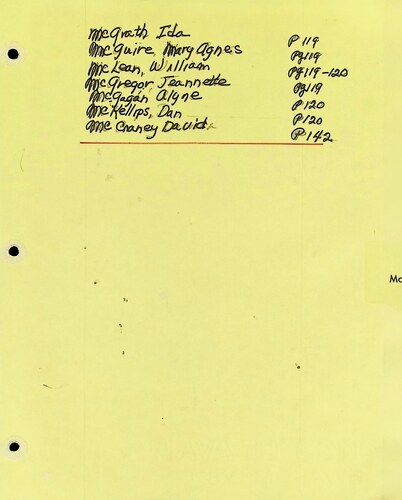 McGrath Ida P 119
McGuire, Mary Agnes Pg 119
McLean, William Pg 119-120
McGregor, Jeannette Pg 119
McGagan Alyne P 120
McKellips, Dan P 120
McChaney David P 142
Mc